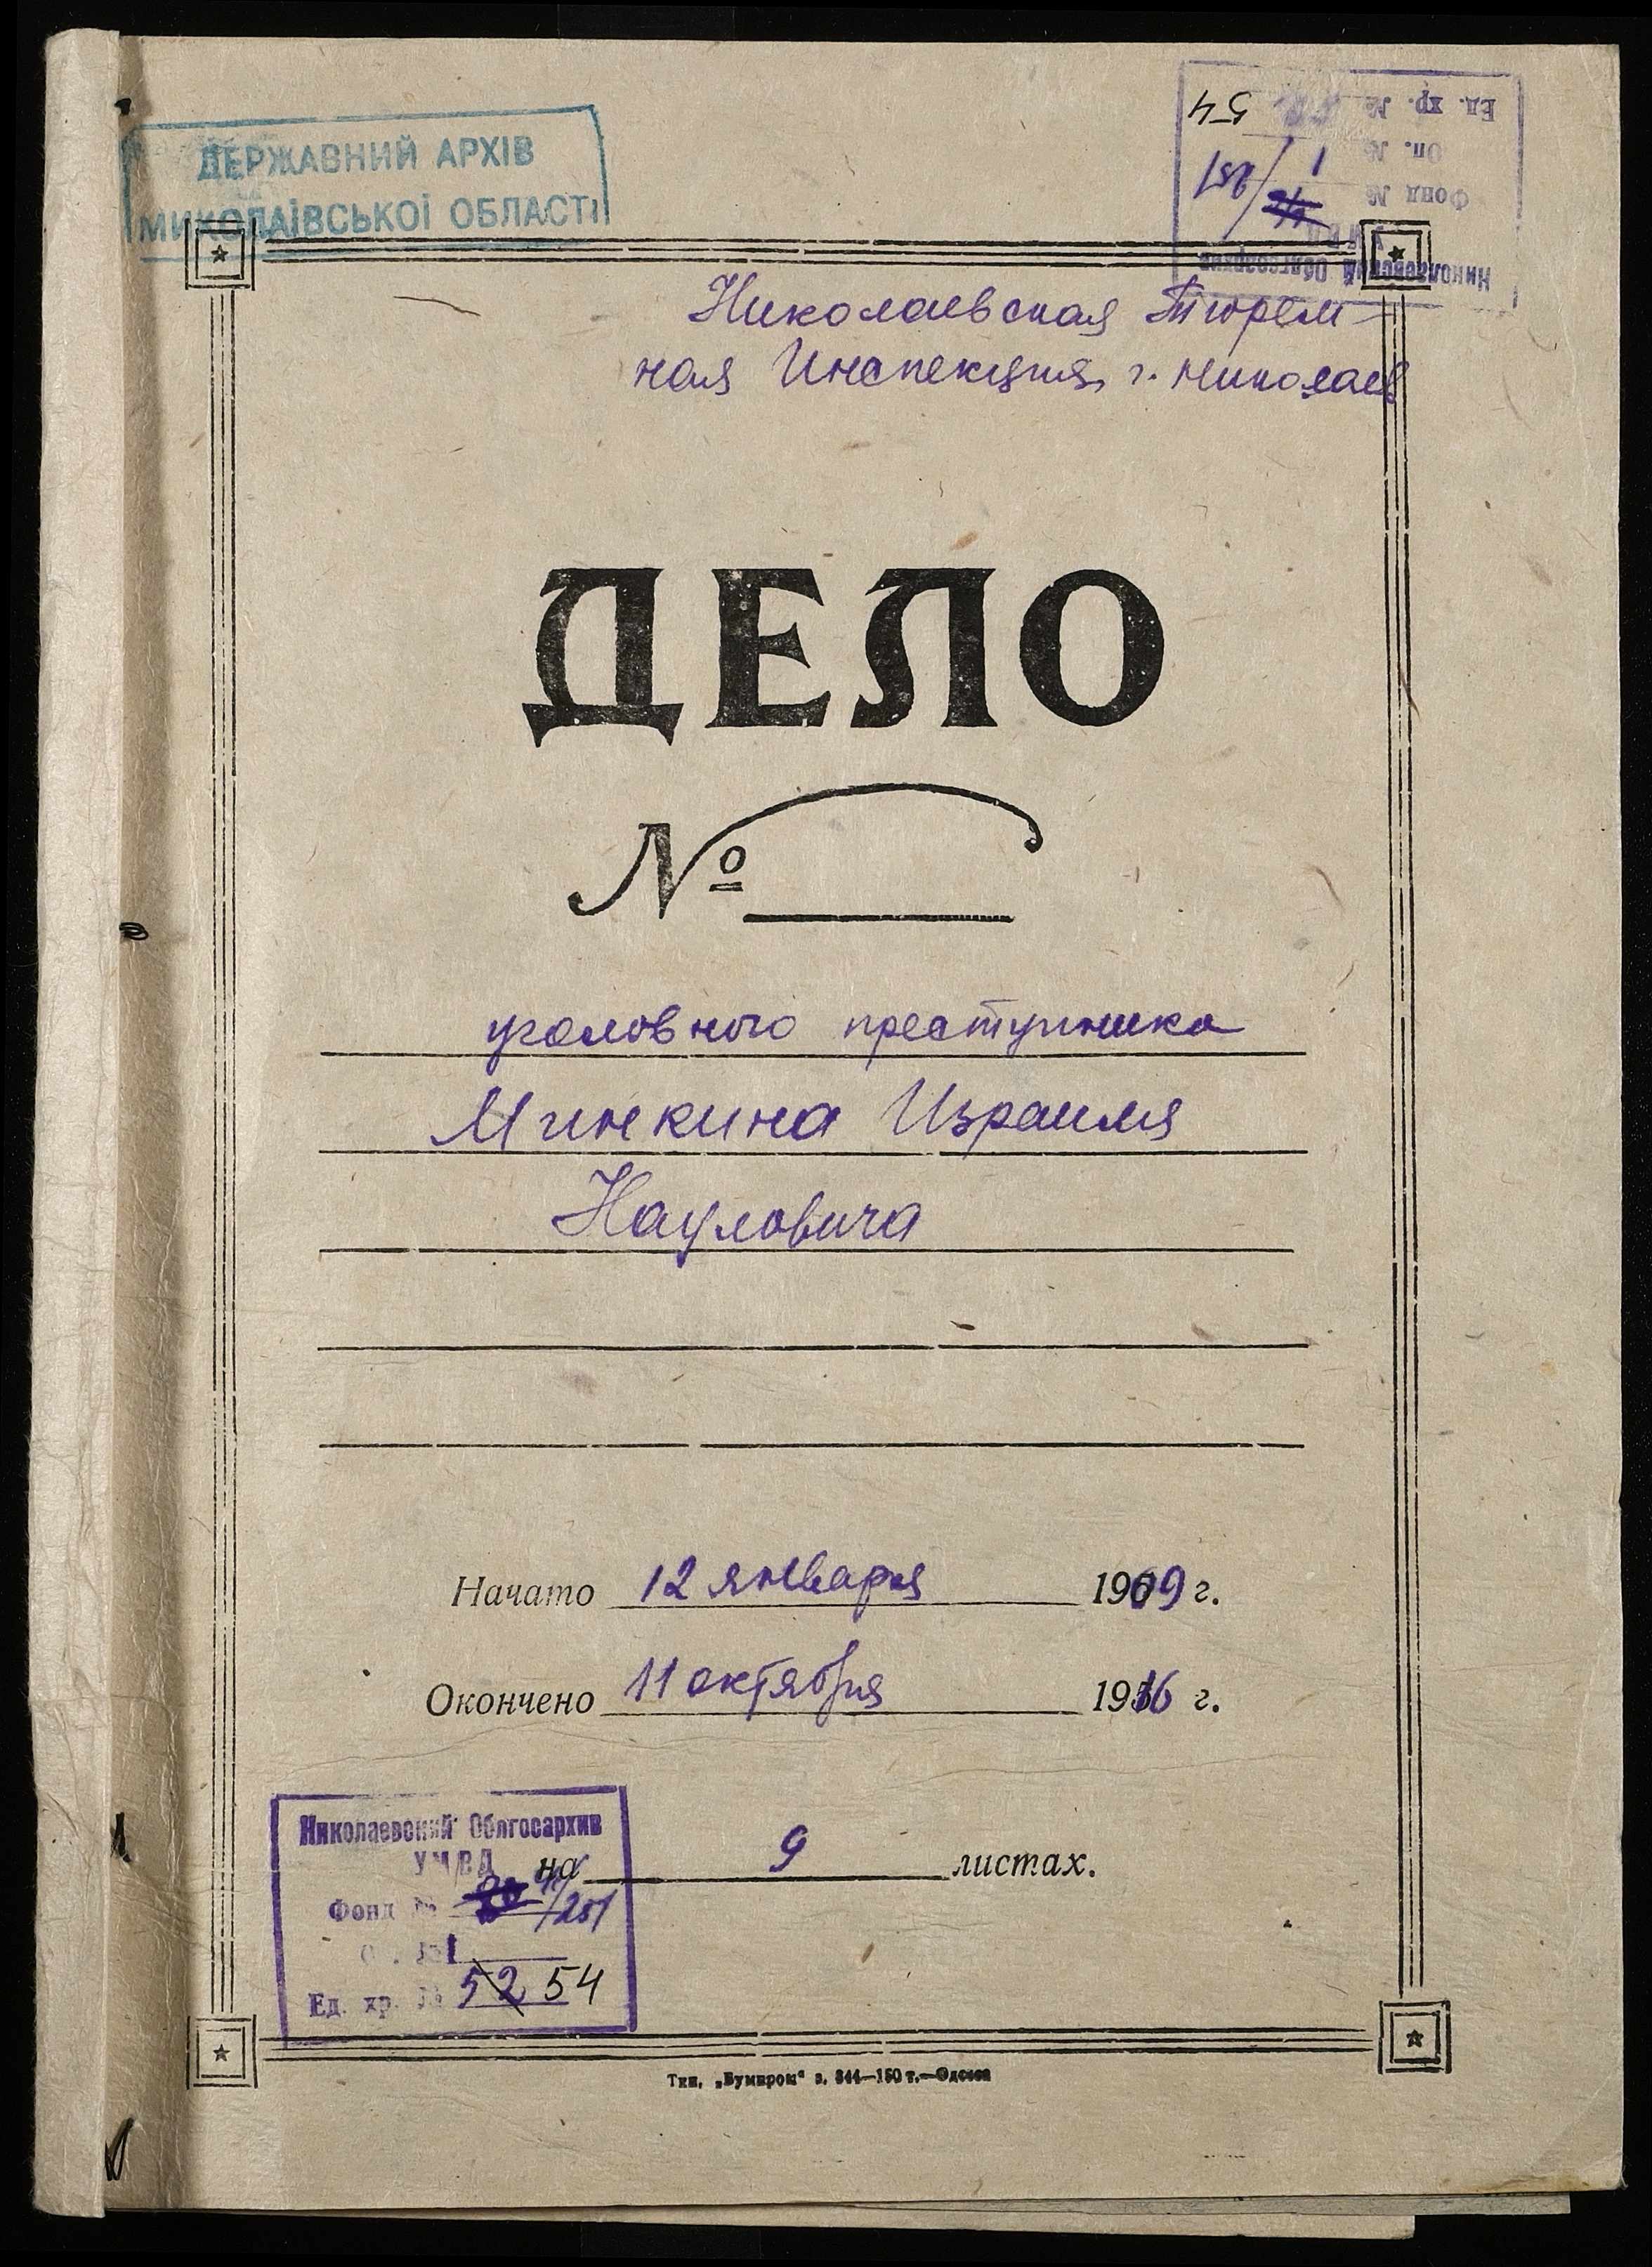 ДЕРЖАВНИЙ АРХІВ
МИКОЛАЇВСЬКОЇ ОБЛАСТІ
Ед. хр. № 54
Оп. № 1
Фонд № /251
Николаевский Облгосархив
Николаевская Тюрем-
ная Инспекция, г. Николаев
ДЕЛО
№
уголовного преступника
Минкина Израиля
Наумовича
Начато 12 января 1909 г.
Окончено 11 октября 1916 г.
на 9 листах.
Николаевский Облгосархив
УМВД
Фонд № /251
Оп. № 1
Ед. хр. № 52 54
Тип. „Бумпром“ з. 344—150 т.—Одесса